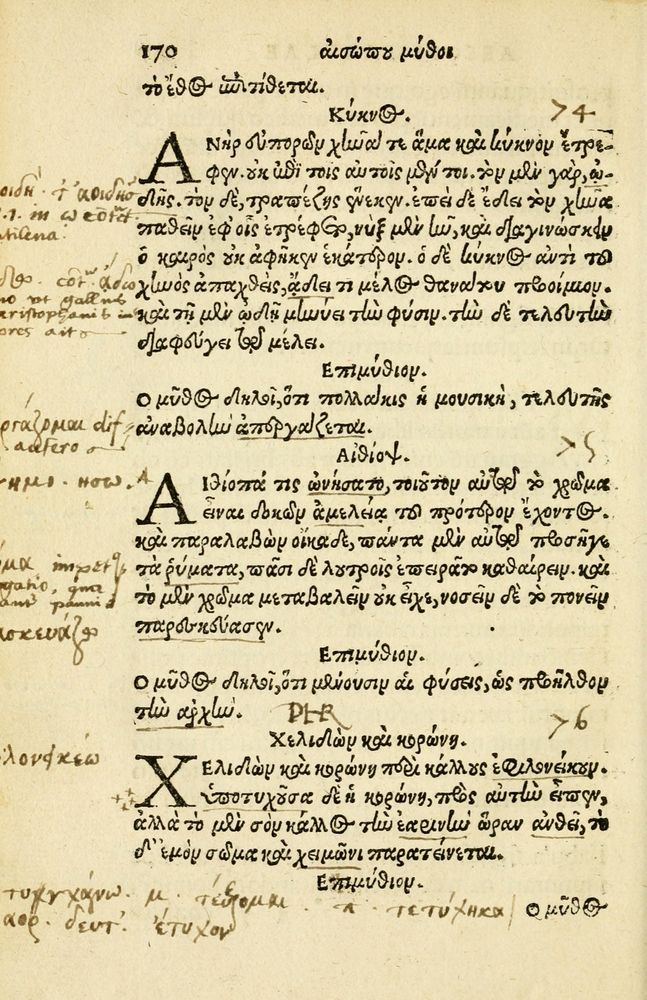 170 αἰσώπου μῦθοι
τὸ ἔθος ὑποτίθεται.
Κύκνος. 74
ΑΝὴρ εὐπορῶν χῆνά τε ἅμα καὶ κύκνον ἔτρε-
φεν. οὐκ ἐπὶ τοῖς αὐτοῖς μέν τοι. τὸν μὲν γὰρ, ᾠ-
δῆς. τὸν δὲ, τραπέζης ἕνεκεν. ἐπεὶ δὲ ἔδει τὸν χῆνα
παθεῖν ἐφ' οἷς ἐτρέφετο, νὺξ μὲν ἦν, καὶ διαγινώσκειν
ὁ καιρὸς οὐκ ἀφῆκεν ἑκάτερον. ὁ δὲ κύκνος ἀντὶ τοῦ
χηνὸς ἀπαχθεὶς, ᾄδει τι μέλος θανάτου προοίμιον.
καὶ τῇ μὲν ᾠδῇ μηνύει τὴν φύσιν. τὴν δὲ τελευτὴν
διαφεύγει τῷ μέλει.
Επιμύθιον.
Ο μῦθος δηλοῖ, ὅτι πολλάκις ἡ μουσικὴ, τελευτῆς
ἀναβολὴν ἀπεργάζεται.
Αἰθίοψ. 75
ΑΙθίοπά τις ὠνήσατο, τοιοῦτον αὐτῷ τὸ χρῶμα
εἶναι δοκῶν ἀμελείᾳ τοῦ πρότερον ἔχοντος.
καὶ παραλαβὼν οἴκαδε, πάντα μὲν αὐτῷ προσῆγε
τὰ ῥύματα, πᾶσι δὲ λουτροῖς ἐπειρᾶτο καθαίρειν. καὶ
τὸ μὲν χρῶμα μεταβαλεῖν οὐκ εἶχε, νοσεῖν δὲ τὸ πονεῖν
παρεσκεύασεν.
Επιμύθιον.
Ο μῦθος δηλοῖ, ὅτι μένουσιν αἱ φύσεις, ὡς προῆλθον
τὴν ἀρχήν.
Χελιδὼν καὶ κορώνη. 76
ΧΕλιδὼν καὶ κορώνη περὶ κάλλους ἐφιλονείκουν.
ὑποτυχοῦσα δὲ ἡ κορώνη, πρὸς αὐτὴν εἶπεν,
ἀλλὰ τὸ μὲν σὸν κάλλος τὴν ἐαρινὴν ὥραν ἀνθεῖ, τὸ
δ' ἐμὸν σῶμα καὶ χειμῶνι παρατείνεται.
Επιμύθιον.
Ο μῦθος
τυγχάνω. μ. τεύξομαι π. τετύχηκα
αορ. δευτ. ἔτυχον